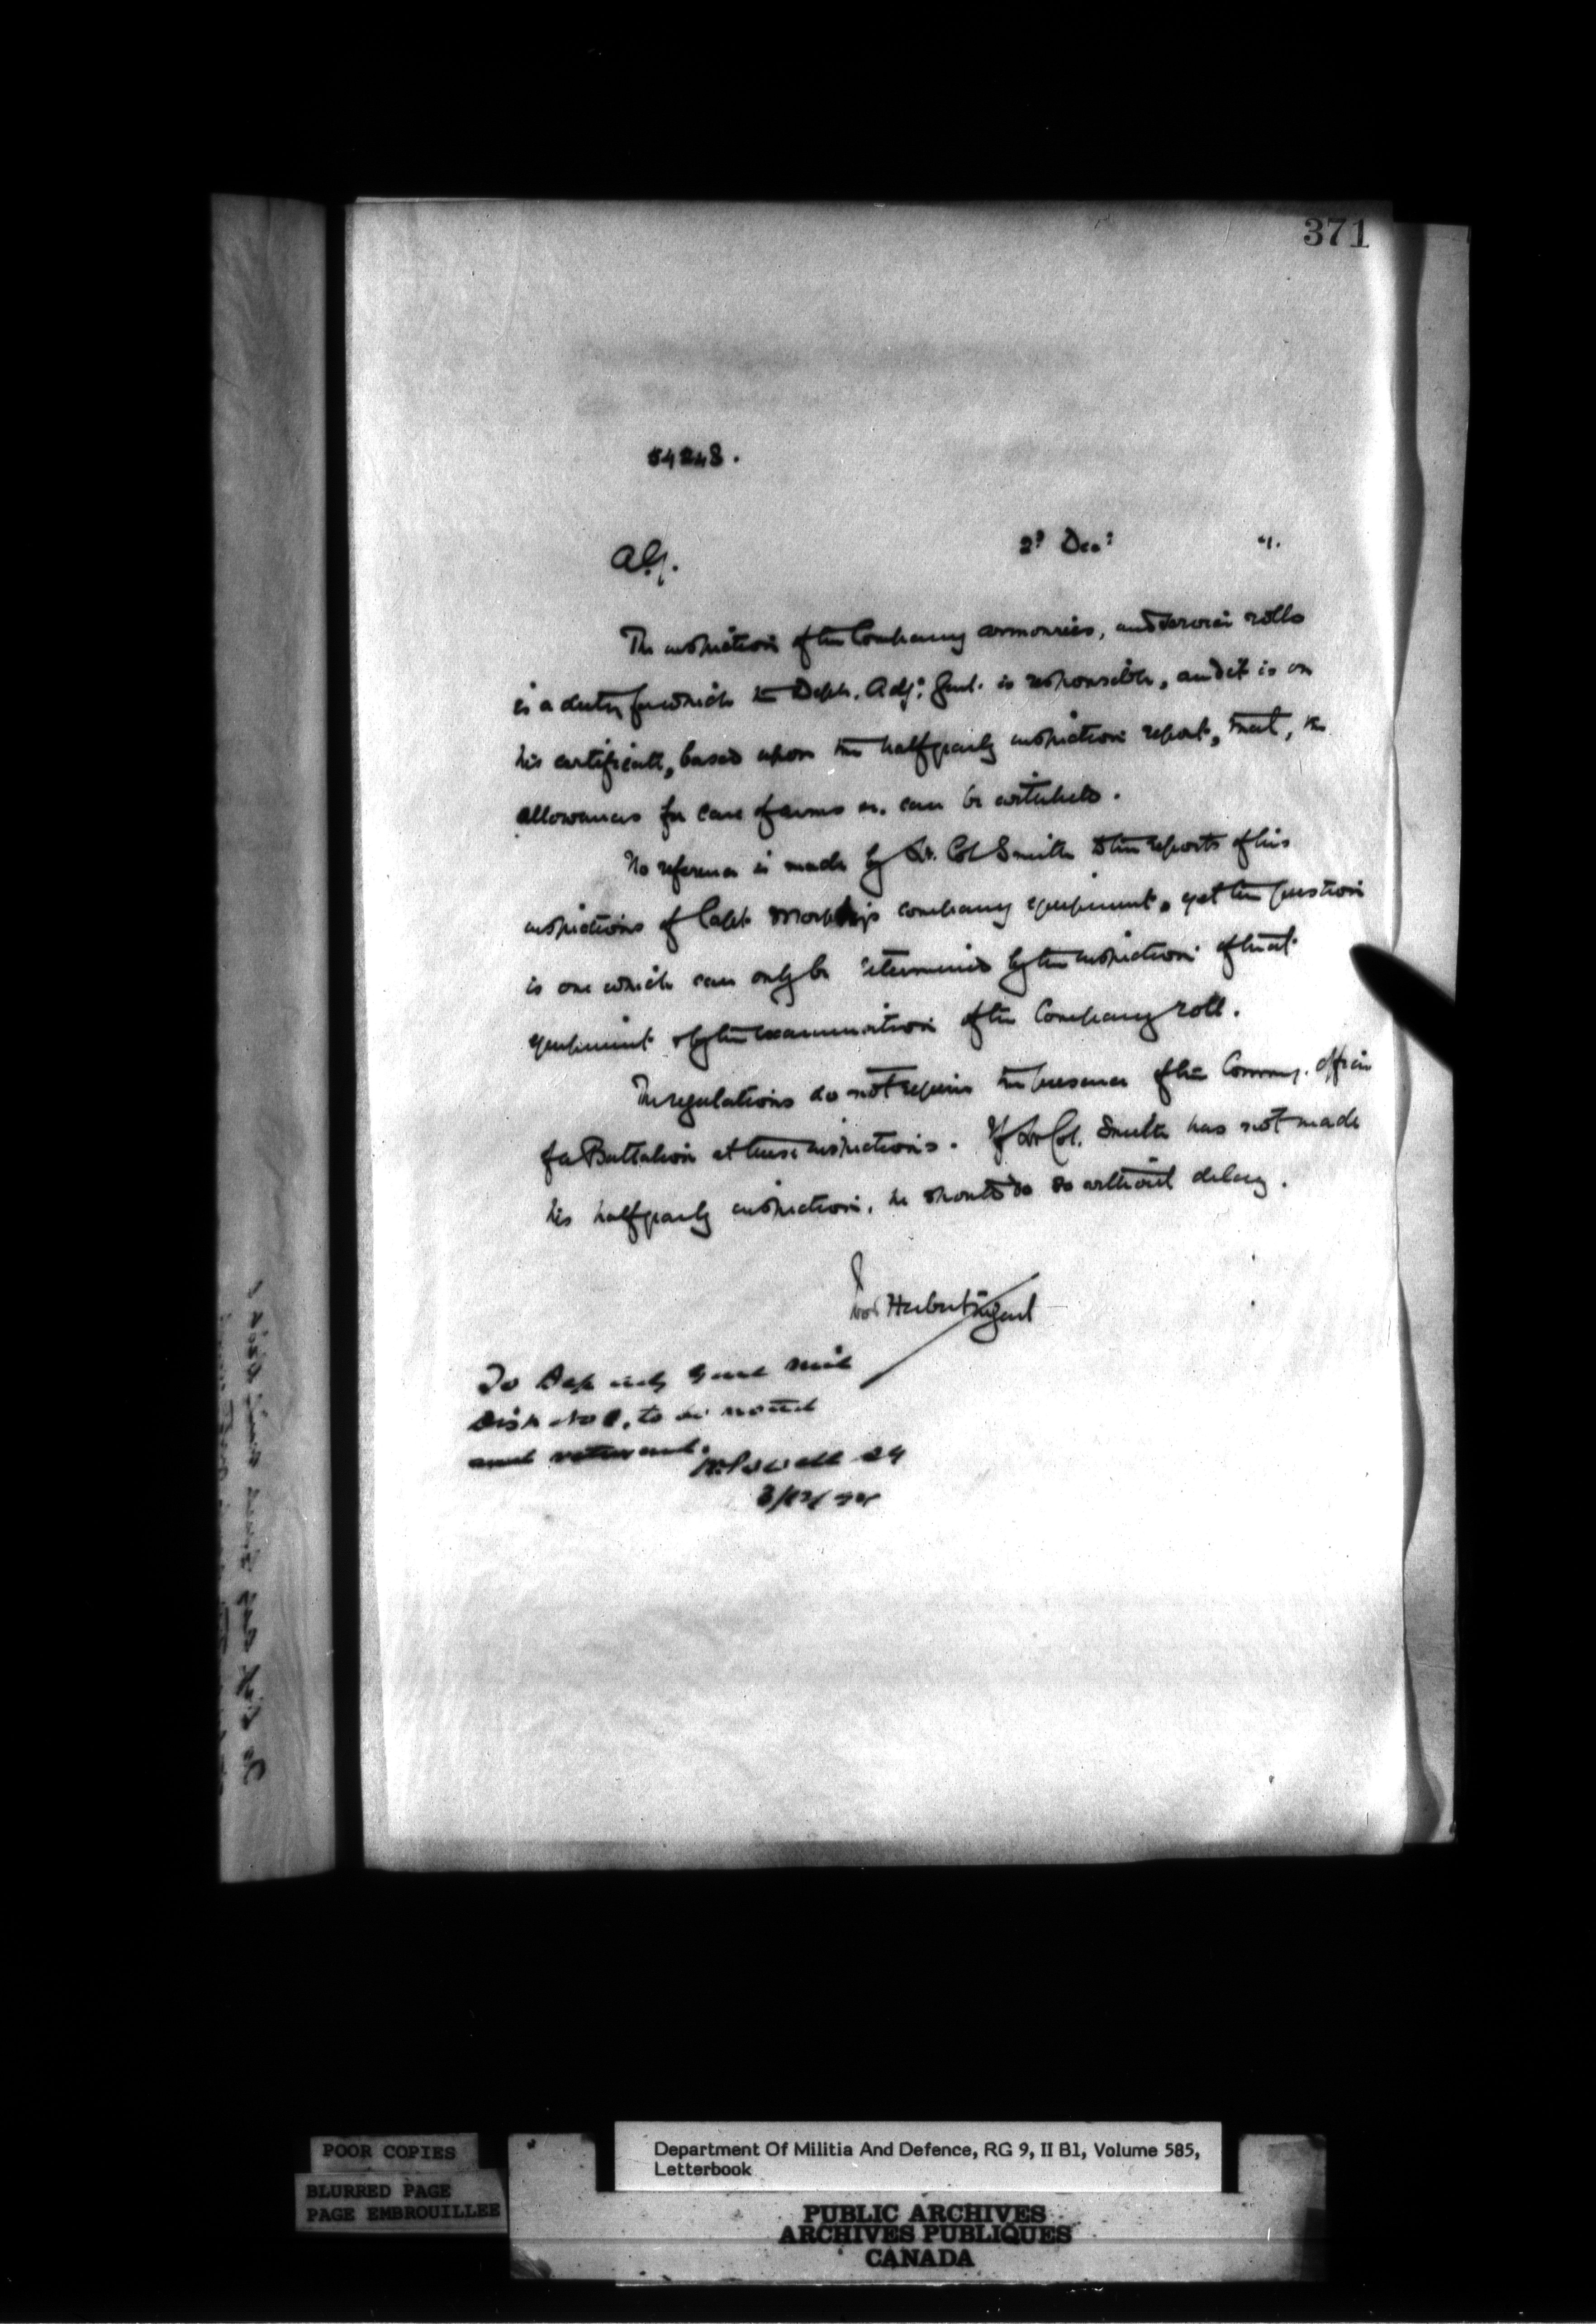 371
54248.
A.G. 2d Decr
The inspection of the Company armouries, and service rolls
is a duty for which the Depty. Adjt. Genl. is responsible, and it is on
his certificate, based upon the half yearly inspection report, that, the
allowances for care of arms &c. can be withheld.
No reference is made by Lt. Col Smith to the reports of his
inspections of Capt. company equipment, yet the question
is one which can only be determined by the inspection of that
equipment & by the examination of the Company roll.
The regulations do not require the presence of the Commg. officer
of a Battalion at these inspections. If Lt Col. Smith has not made
his half yearly inspection, he should do so without delay.
Ivor Herbert M Genl
To Dep adj Genl Mil
Dist No , to be noted
and returned.
W Powell AG
POOR COPIES
BLURRED PAGE
PAGE EMBROUILLEE
Department Of Militia And Defence, RG 9, II B1, Volume 585,
Letterbook
PUBLIC ARCHIVES
ARCHIVES PUBLIQUES
CANADA